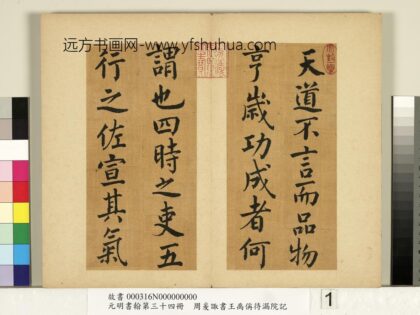 远方书画网·www.yfshuhua.com
天道不言而品物
亨歲功成者何
謂也四時之吏五
行之佐宣其氣
故書 000316N000000000
元明書翰第三十四冊 周爰諏書王禹偁待漏院記
1